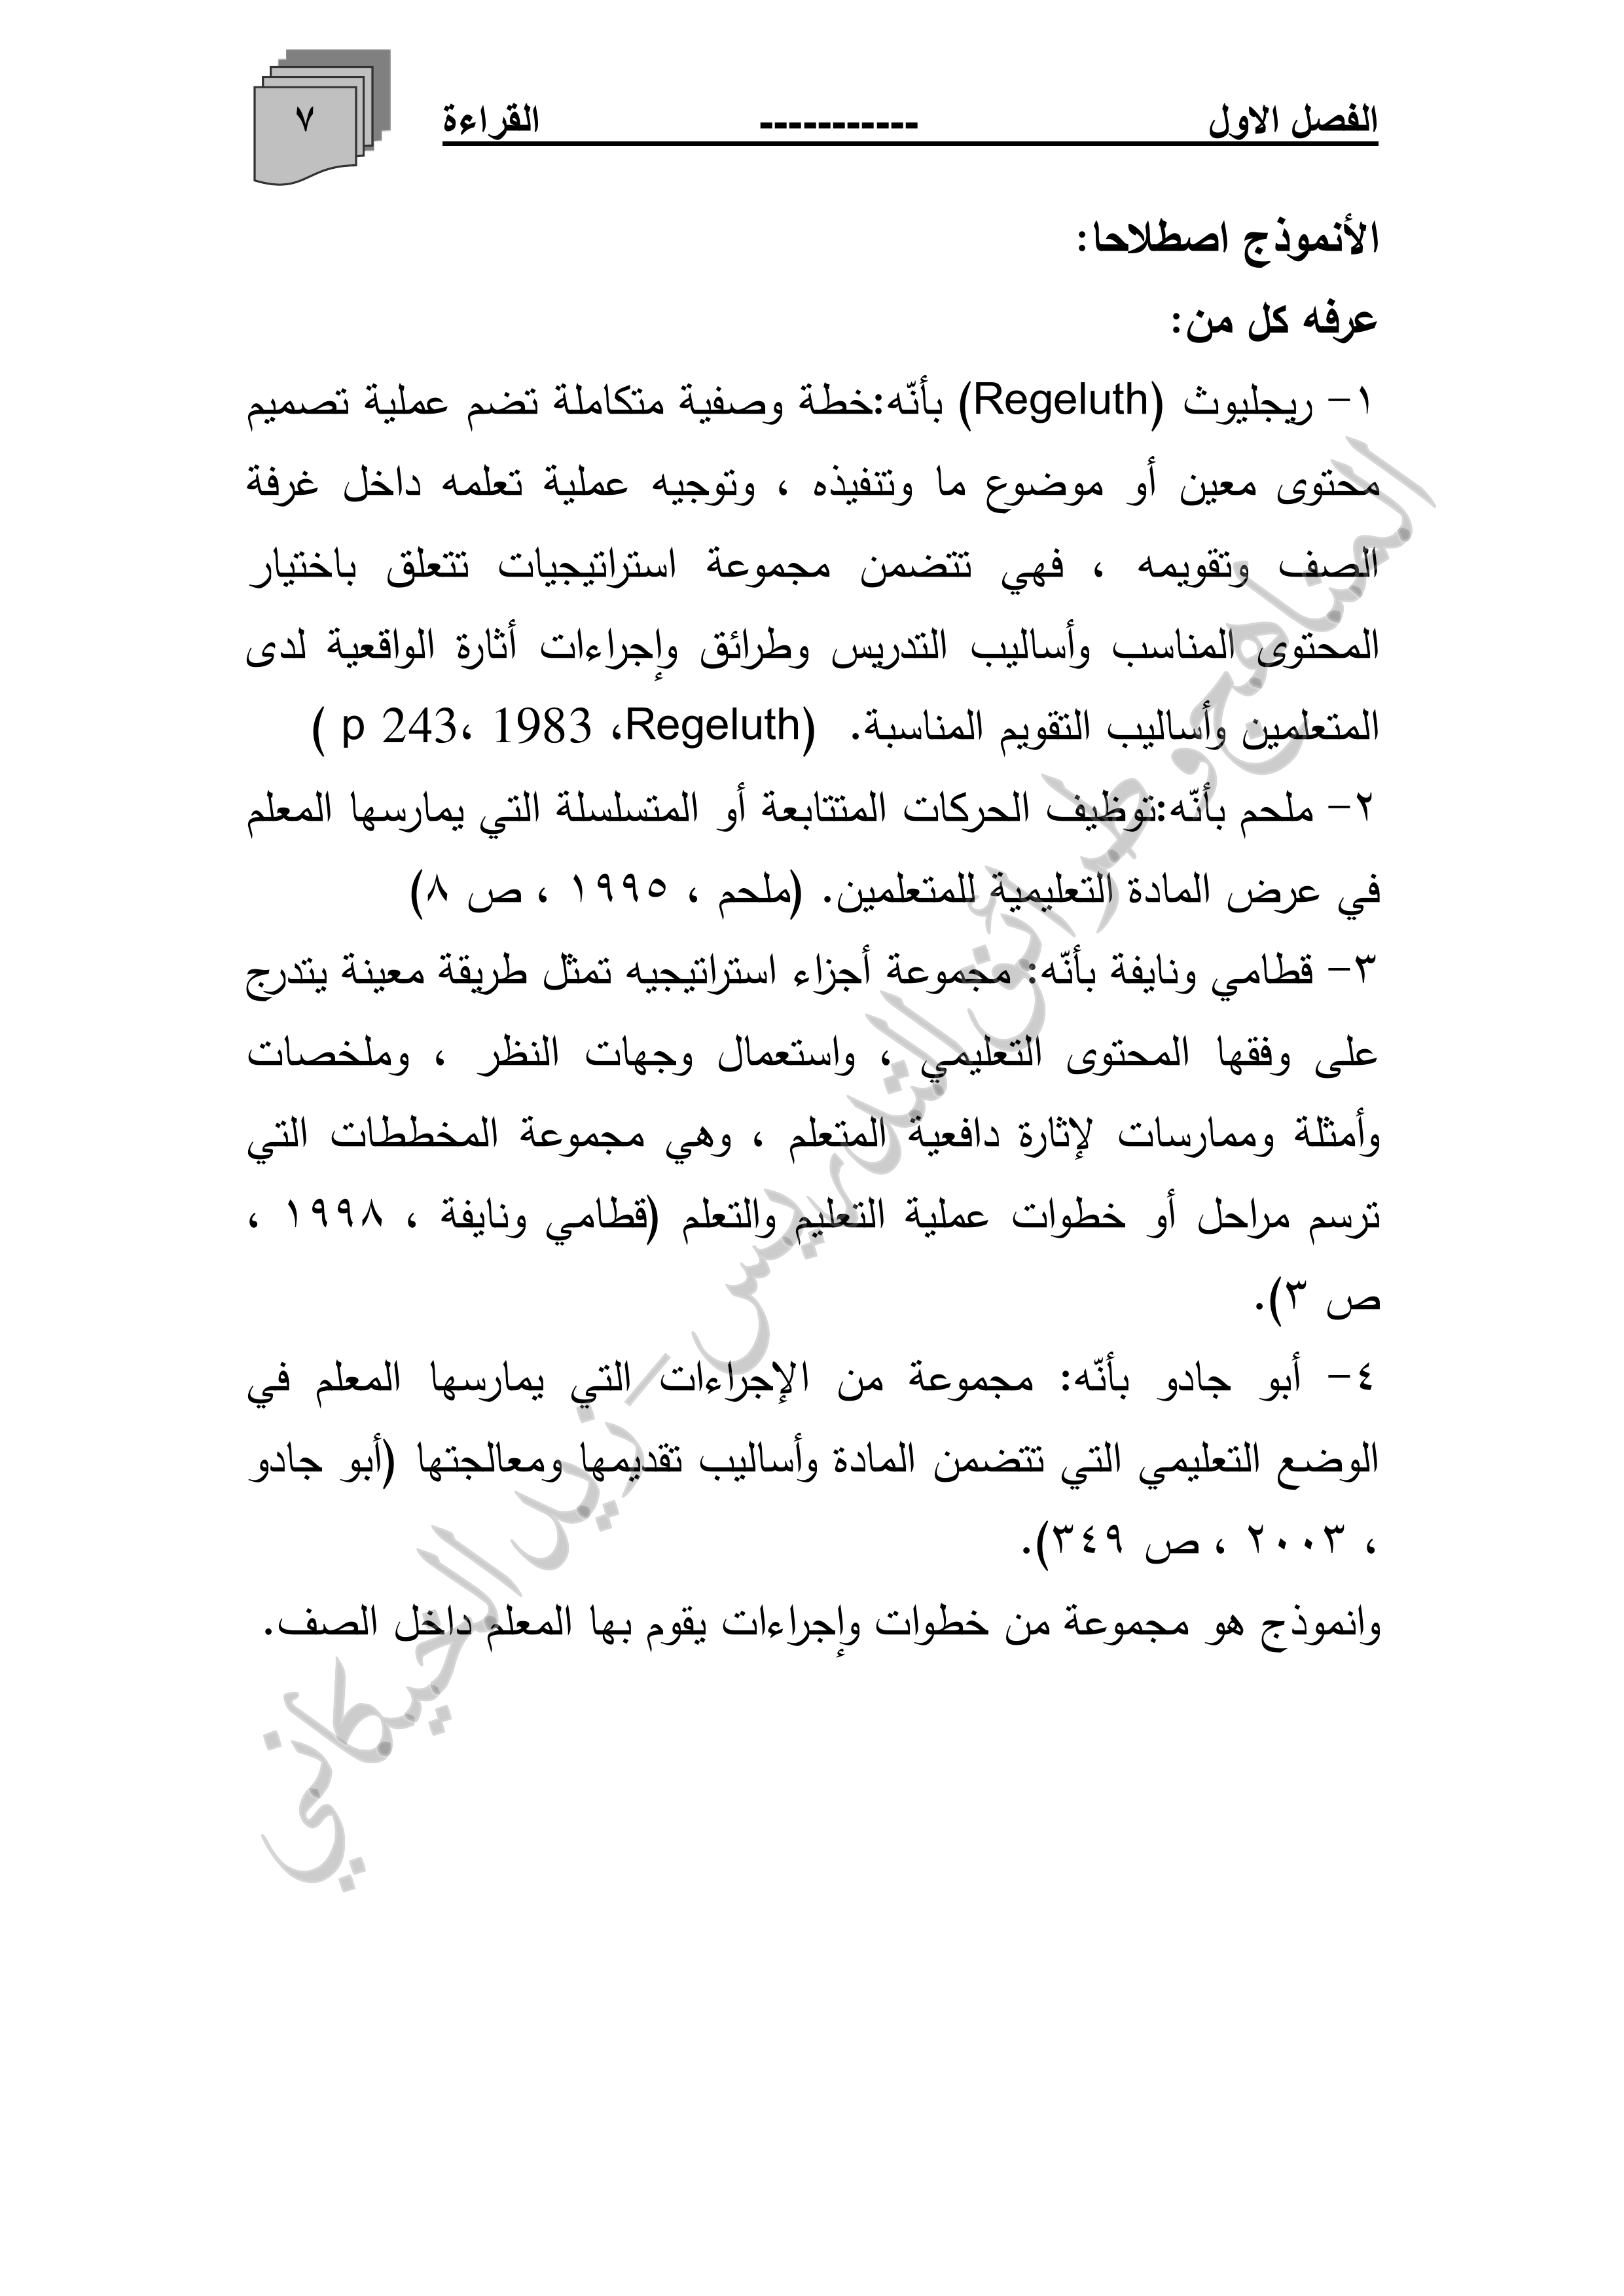 الفصل الاول ----------- القراءة
٧
الأنموذج اصطلاحا:
عرفه كل من:
١- ريجليوث (Regeluth) بأنّه:خطة وصفية متكاملة تضم عملية تصميم
محتوى معين أو موضوع ما وتنفيذه ، وتوجيه عملية تعلمه داخل غرفة
الصف وتقويمه ، فهي تتضمن مجموعة استراتيجيات تتعلق باختيار
المحتوى المناسب وأساليب التدريس وطرائق وإجراءات أثارة الواقعية لدى
المتعلمين وأساليب التقويم المناسبة. (Regeluth، 1983 ،p 243 )
٢- ملحم بأنّه:توظيف الحركات المتتابعة أو المتسلسلة التي يمارسها المعلم
في عرض المادة التعليمية للمتعلمين. (ملحم ، ١٩٩٥ ، ص ٨)
٣- قطامي ونايفة بأنّه: مجموعة أجزاء استراتيجيه تمثل طريقة معينة يتدرج
على وفقها المحتوى التعليمي ، واستعمال وجهات النظر ، وملخصات
وأمثلة وممارسات لإثارة دافعية المتعلم ، وهي مجموعة المخططات التي
ترسم مراحل أو خطوات عملية التعليم والتعلم (قطامي ونايفة ، ١٩٩٨ ،
ص ٣).
٤- أبو جادو بأنّه: مجموعة من الإجراءات التي يمارسها المعلم في
الوضع التعليمي التي تتضمن المادة وأساليب تقديمها ومعالجتها (أبو جادو
، ٢٠٠٣ ، ص ٣٤٩).
وانموذج هو مجموعة من خطوات وإجراءات يقوم بها المعلم داخل الصف.
المناهج وطرائق التدريس - زيد الحيكاني